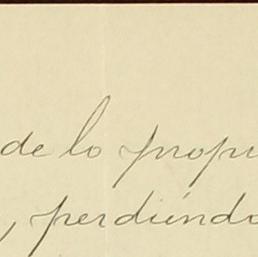 de lo propi
, perdiéndo